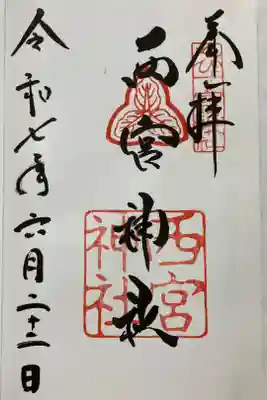 奉拝
西宮神社
西宮神社
令和七年六月二十二日